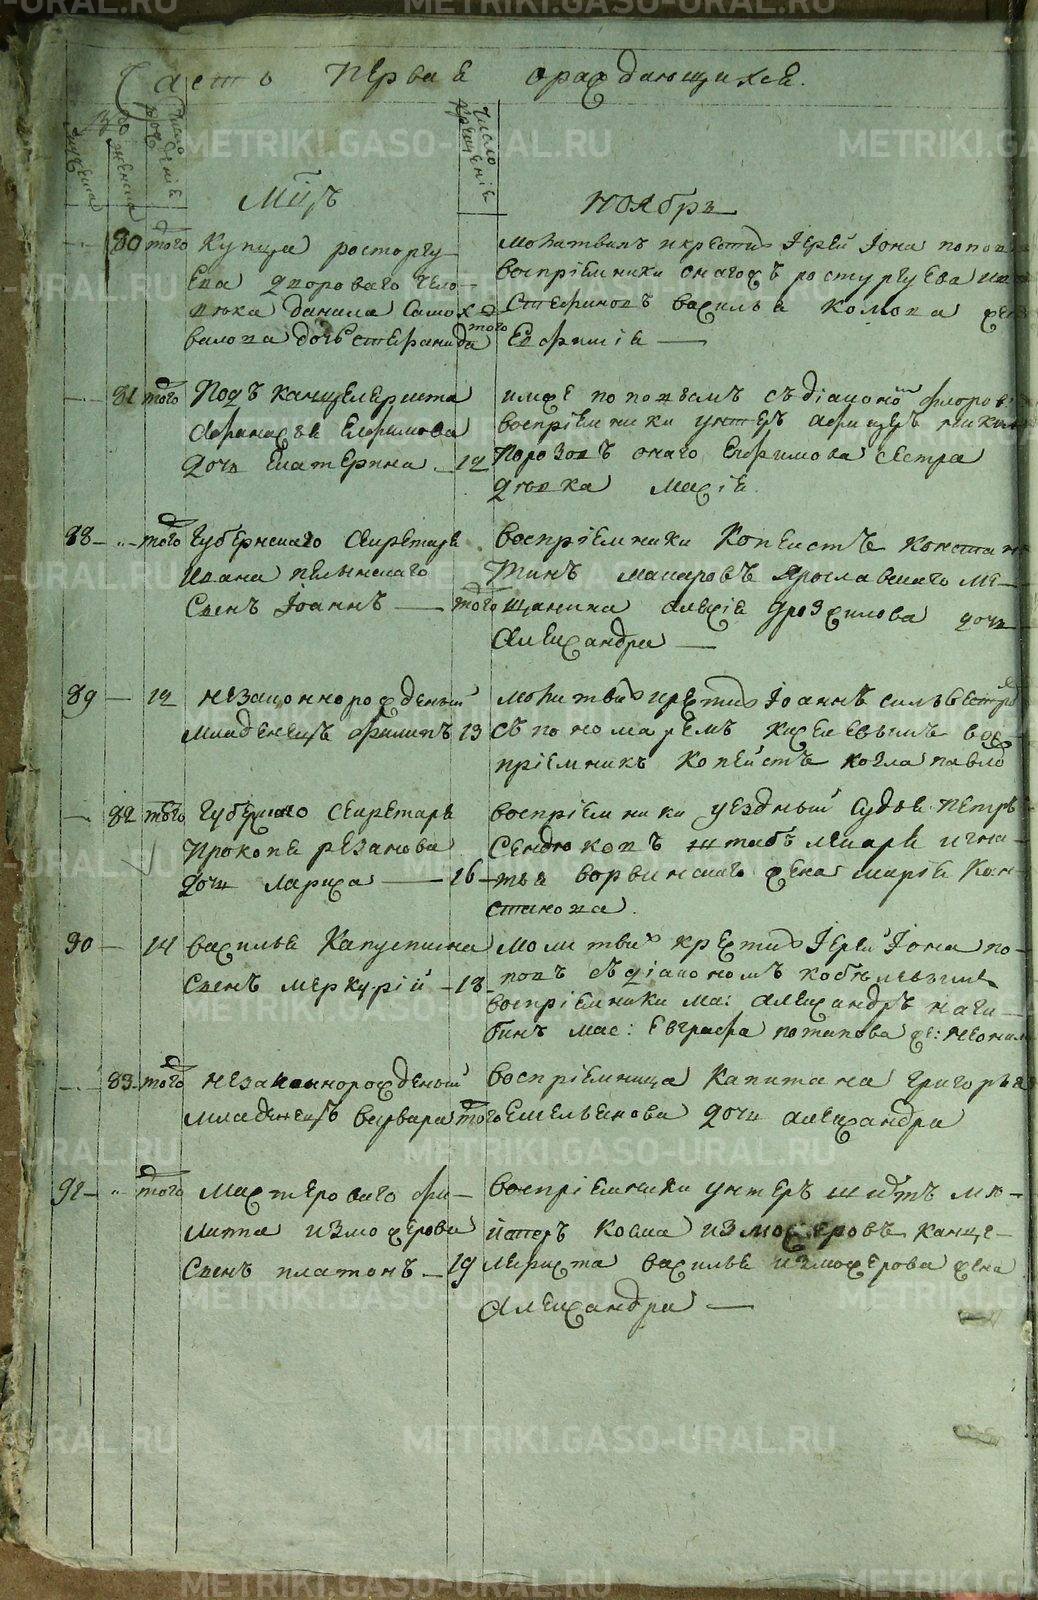 METRIKI.GASO-URAL.RU
Часть Первая ораждающихся.
мужеска
женска
число рождения
число крещения
Мцъ
Ноября
80 того Купца росторгу
ева двороваго чело
века данила Само
валова дочь стефанида того
молитвилъ и крестилъ Іерей Іона попов
воспріемники онагожъ ростургуева
Стефановъ василья Комова
Евфимія
81 того Подъ канцеляриста
Афанасья Ефимова
дочь Екатерина 12
имже поповымъ съ діаконо флоров
воспріемники унтеръ афицеръ
Морозовъ онаго Ефимова сестра
девка Марія
88 того Губернскаго Секретаря
Ивана пелынскаго
Сынъ Іоаннъ того
воспріемники Копеистъ Конста
тинъ макаровъ Ярославскаго ме
щанина алексія дрозжилова дочь
Александра
89 12 незаконнорожденый
младенецъ филипъ 13
молитвилъ и крестилъ Іоаннъ сильвестр
съ пономаремъ киселевымъ вос
пріемникъ Копеистъ козма павло
82 того Губернскаго Секретаря
Прокопя резанова
дочь Лариса 16
воспріемники уездный Судья Петръ
Сендюковъ штабъ лекаря игна
тья ворвинскаго жена марія Кон
стантинова.
90 14 василья Капустина
Сынъ меркурій 18
молитвилъ крестилъ Іерей Іона по
повъ съ діакономъ кобылевымъ
воспріемники мас: Александръ наги
бинъ мас: Евграфа потапова же: неонил
83 того незаконнорожденый
младенецъ варвара того
воспріемница Капитана Григорья
Емельянова дочь александра
92 того мастероваго фи
липа изможерова
Сынъ платонъ 19
воспріемники унтеръ шихтъ мѣ
йстеръ Козма изможеровъ канце
ляриста василья изможерова жена
Александра